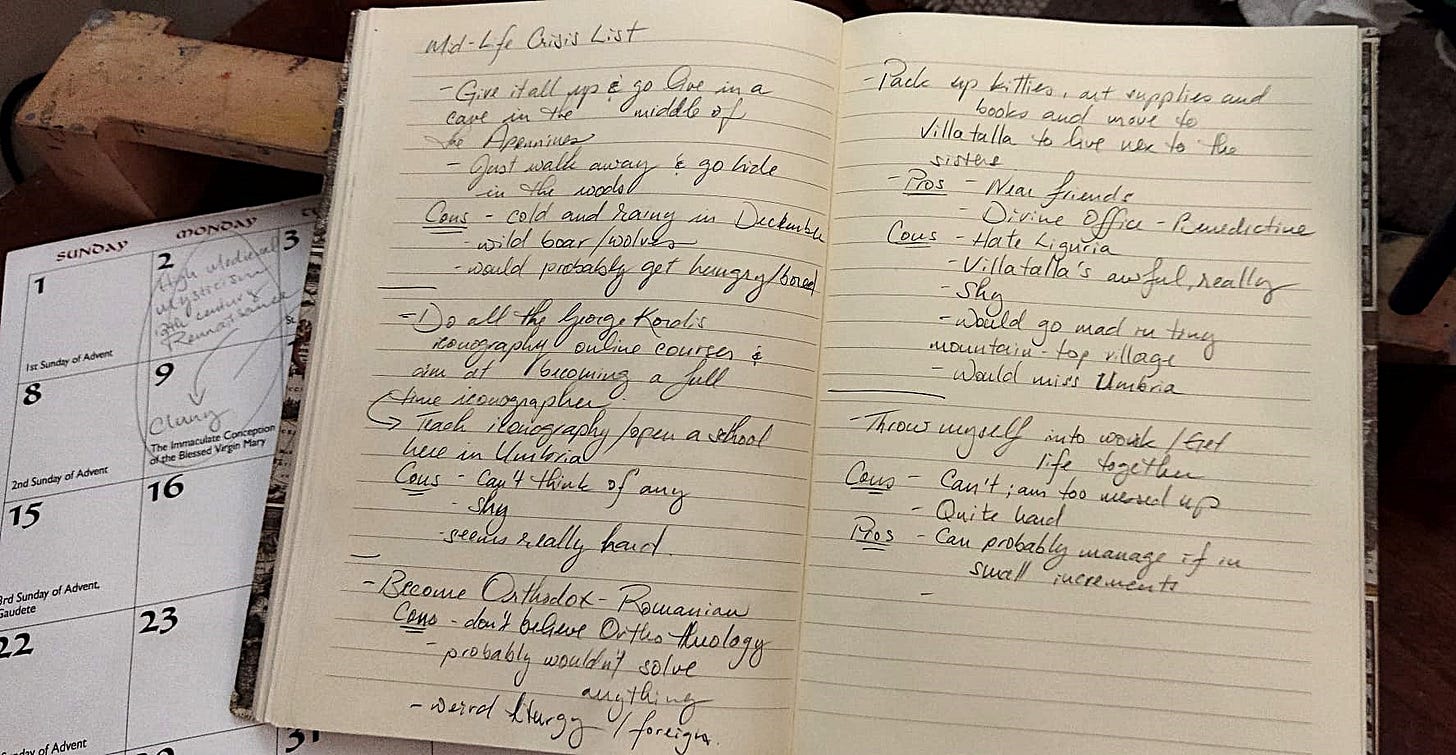 Mid-Life Crisis List
- Give it all up & go live in a
cave in the middle of
the Apennines
- Just walk away & go hide
in the woods
Cons - cold and rainy in December
- wild boar/wolves
- would probably get hungry/bored
- Do all the George Kordis
iconography online courses &
aim at becoming a full
time iconographer
→ Teach iconography/open a school
here in Umbria
Cons - Can't think of any
- Shy
- seems really hard.
- Become Orthodox - Romanian
Cons - don't believe Ortho theology
- probably wouldn't solve
anything
- weird liturgy / foreign.
- Pack up kitties, art supplies and
books and move to
Villatalla to live nex to the
sisters
- Pros - Near friends
- Divine Office - Benedictine
Cons - Hate Liguria
- Villatalla's awful, really
- Shy
- would go mad in tiny
mountain-top village
- Would miss Umbria
- Throw myself into work / Get
life together
Cons - Can't; am too messed up
- Quite hard
Pros - Can probably manage if in
small increments
-
SUNDAY MONDAY
1 2 3
High Medieval
Mysticism
12th century
Rennaissance
St.
1st Sunday of Advent
8 9
Cluny
The Immaculate Conception
of the Blessed Virgin Mary
2nd Sunday of Advent
15 16
3rd Sunday of Advent,
Gaudete
22 23
Sunday of Advent
30 31